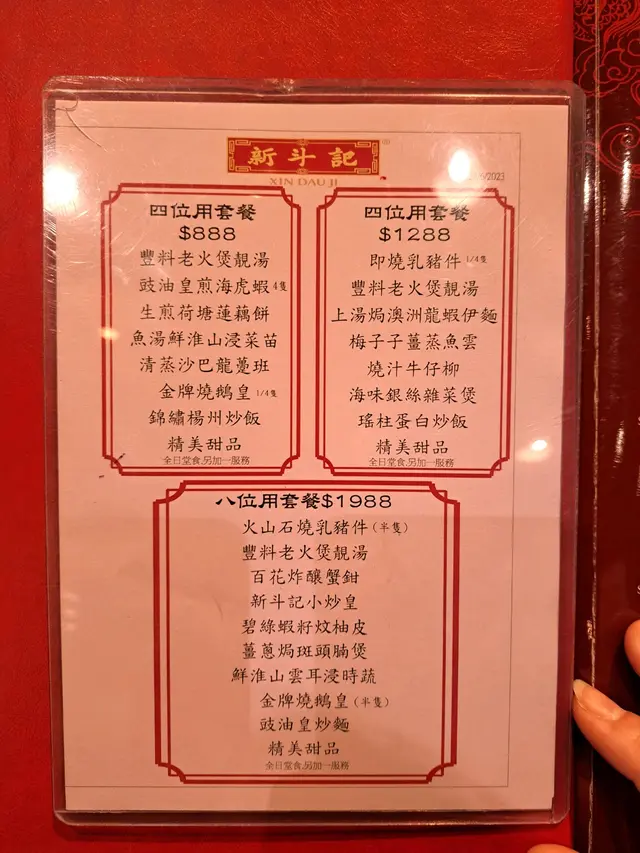 新斗記
XIN DAU JI
6/2023
四位用套餐
$888
豐料老火煲靚湯
豉油皇煎海虎蝦 4隻
生煎荷塘蓮藕餅
魚湯鮮淮山浸菜苗
清蒸沙巴龍躉班
金牌燒鵝皇 1/4隻
錦繡楊州炒飯
精美甜品
全日堂食,另加一服務
四位用套餐
$1288
即燒乳豬件 1/4隻
豐料老火煲靚湯
上湯焗澳洲龍蝦伊麵
梅子子薑蒸魚雲
燒汁牛仔柳
海味銀絲雜菜煲
瑤柱蛋白炒飯
精美甜品
全日堂食,另加一服務
八位用套餐$1988
火山石燒乳豬件(半隻)
豐料老火煲靚湯
百花炸釀蟹鉗
新斗記小炒皇
碧綠蝦籽炆柚皮
薑蔥焗斑頭腩煲
鮮淮山雲耳浸時蔬
金牌燒鵝皇(半隻)
豉油皇炒麵
精美甜品
全日堂食,另加一服務